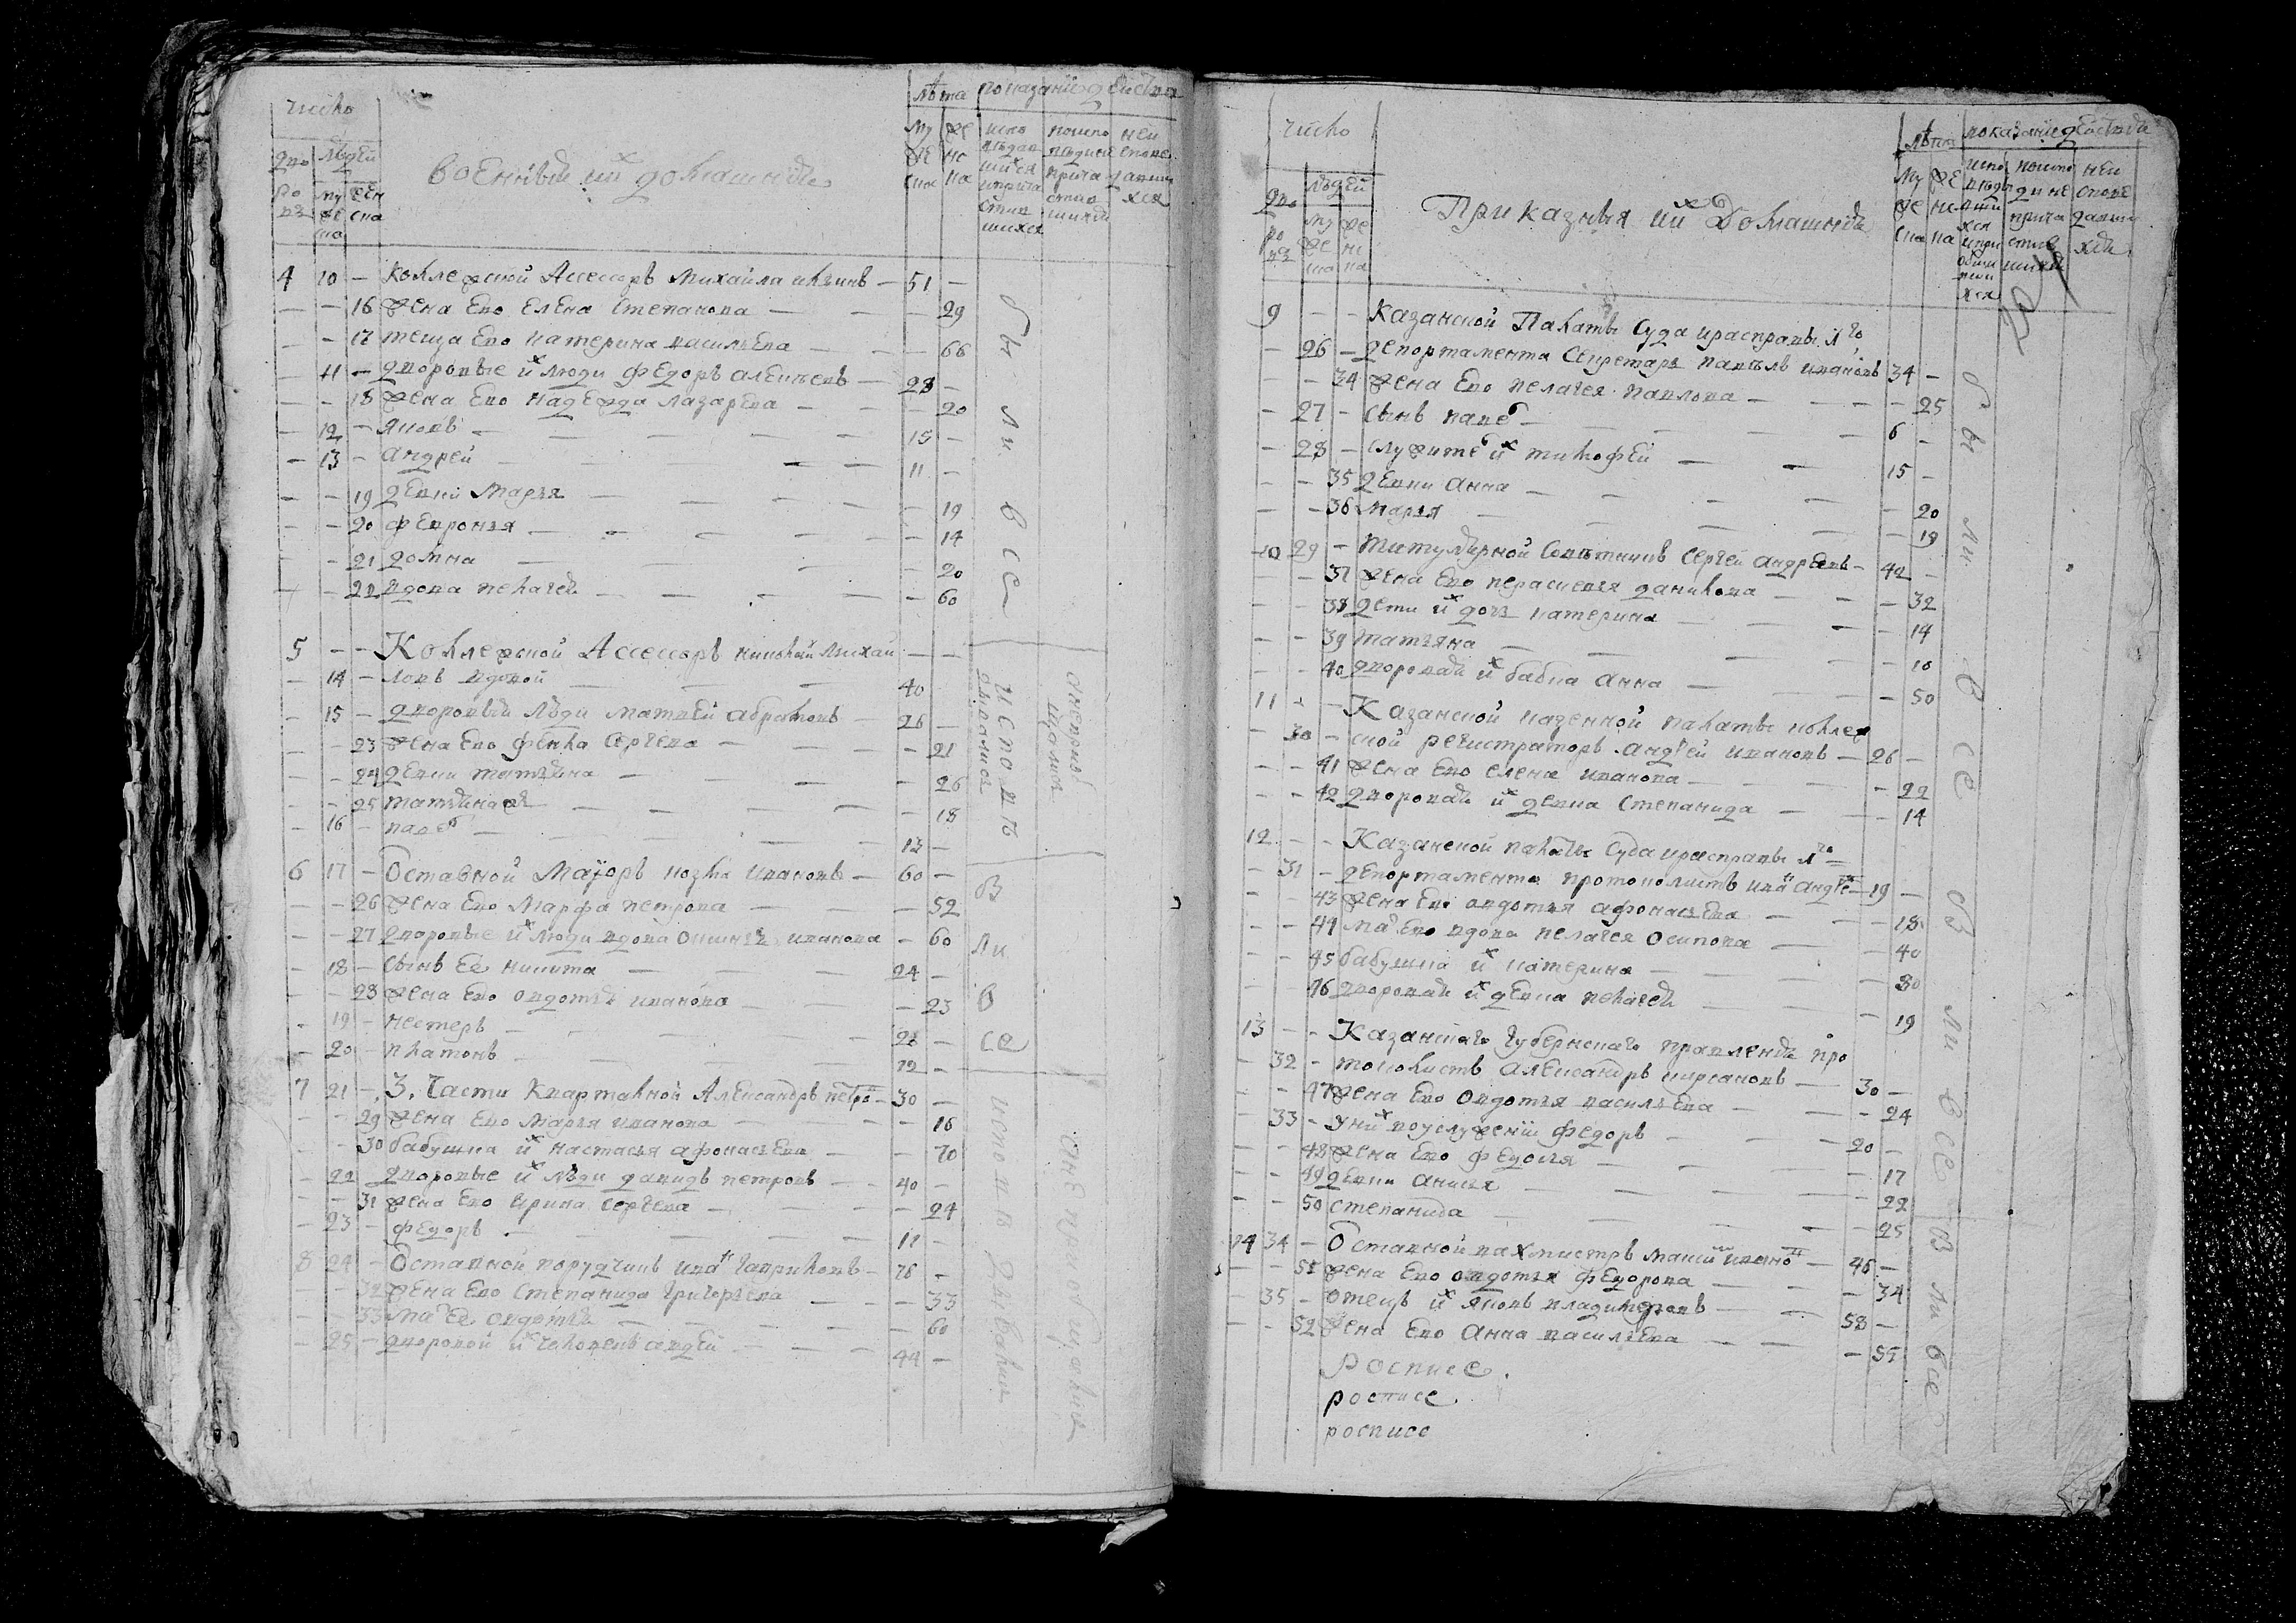 число
лета показание действа
дво
ро
въ
людей
му
же
ска
жен
ска
военныя и их домашния
му
же
ска
же
нс
ка
испо
ведав
шихся
и прича
стив
шихся
испо
ведыв
прича
стив
шихся
неи
спове
давши
хся
4 10 - Коллежской Ассесоръ Михайла — 51 -
- - 16 жена ево Елена Степанова — - 29
- - 17 теща ево Катерина васильева — - 66
- 11 - дворовые их люди Федоръ алексеевъ — 28 -
- - 18 жена ево надежда лазарева — - 20
- 12 - яковъ — 15 -
- 13 - андрей — 11 -
- - 19 девки марья — - 19
- - 20 февронья — - 14
- - 21 домна — - 20
- - 22 вдова пелагея — - 60
5 - - Коллежской Ассесоръ николай михаи
- 14 - ловъ вдовой — 40
- 15 - дворовыя люди матвей абрамовъ — 26 -
- - 23 жена ево фекла сергеева — - 21
- - 24 девки татьяна — - 26
- - 25 татьяна — - 18
- 16 - паве — 13 -
6 17 - Оставной Маиоръ козма ивановъ — 60 -
- - 26 жена ево Марфа петрова — - 52
- - 27 дворовые их люди вдова оксинья иванова - 60
- 18 - сынъ ее никита — 24 -
- - 28 жена ево овдотья иванова — - 23
- 19 - нестеръ — 22 -
- 20 - платонъ — 12 -
7 21 - 3. Части Квартальной Александръ петро — 30 -
- - 29 жена ево марья иванова — - 16
- - 30 бабушка их настасья афонасьева — - 70
- 22 дворовые их люди давидъ петровъ — 40 -
- - 31 жена ево ирина сергеева — - 24
- 23 - федоръ — 11 -
8 24 - Оставной порудчикъ ива гавриловъ — 76 -
- - 32 жена ево Степанида григорьева — - 33
- - 33 ма ее овдотья — - 60
- 25 - дворовой их человекъ андрей — 44 -
были все
исповедовались
были все
исповедывались
число
лета показание действа
дво
ро
въ
людей
му
же
ска
же
нс
ка
Приказныя и их Домашния
му
же
ска
же
нс
ка
неи
спове
давши
хся
9 - - Казанской Палаты Суда и расправы 1го
- 26 - депортамента Секретарь павелъ ивановъ 34 -
- - 34 жена ево пелагея павлова — - 25
- 27 - сынъ паве — 6 -
- 28 - служите их тимофей — 15 -
- - 35 девки анна — - 20
- - 36 марья — - 19
10 29 - титулярной Советникъ Сергей андреевъ — 42 -
- - 37 жена ево парасковья данилова — - 32
- - 38 дети их дочь катерина — - 14
- - 39 татьяна — - 10
- - 40 дворовая их бабка анна — - 50
11 - - Казанской казенной палаты колле
- 30 - ской регистраторъ андрей ивановъ — 26 -
- - 41 жена ево елена иванова — - 22
- - 42 дворовая их девка степанида — - 14
12 - - Казанской палаты Суда и расправы 1го
- 31 - депортамента протоколистъ ива андре — 19 -
- - 43 жена ево овдотья афонасьева — - 18
- - 44 ма ево вдова пелагея осипова — - 40
- - 45 бабушка их катерина — - 80
- - 46 дворовая их девка пелагея — - 19
13 - - Казанскаго губернскаго правления про
- 32 - токолистъ александръ кирсановъ — 30 -
- - 47 жена ево овдотья васильева — - 24
- 33 - у них в услужении федоръ — 20 -
- - 48 жена ево федосья — - 17
- - 49 девки анисья — - 22
- - 50 степанида — - 25
14 34 - Оставной вахмистръ макси ивано — 46 -
- - 51 жена ево овдотья федорова — - 34
- 35 - отецъ их яковъ владимеровъ — 58 -
- - 52 жена ево анна васильева — - 55
росписс.
росписс.
росписс
были все
были все
были все